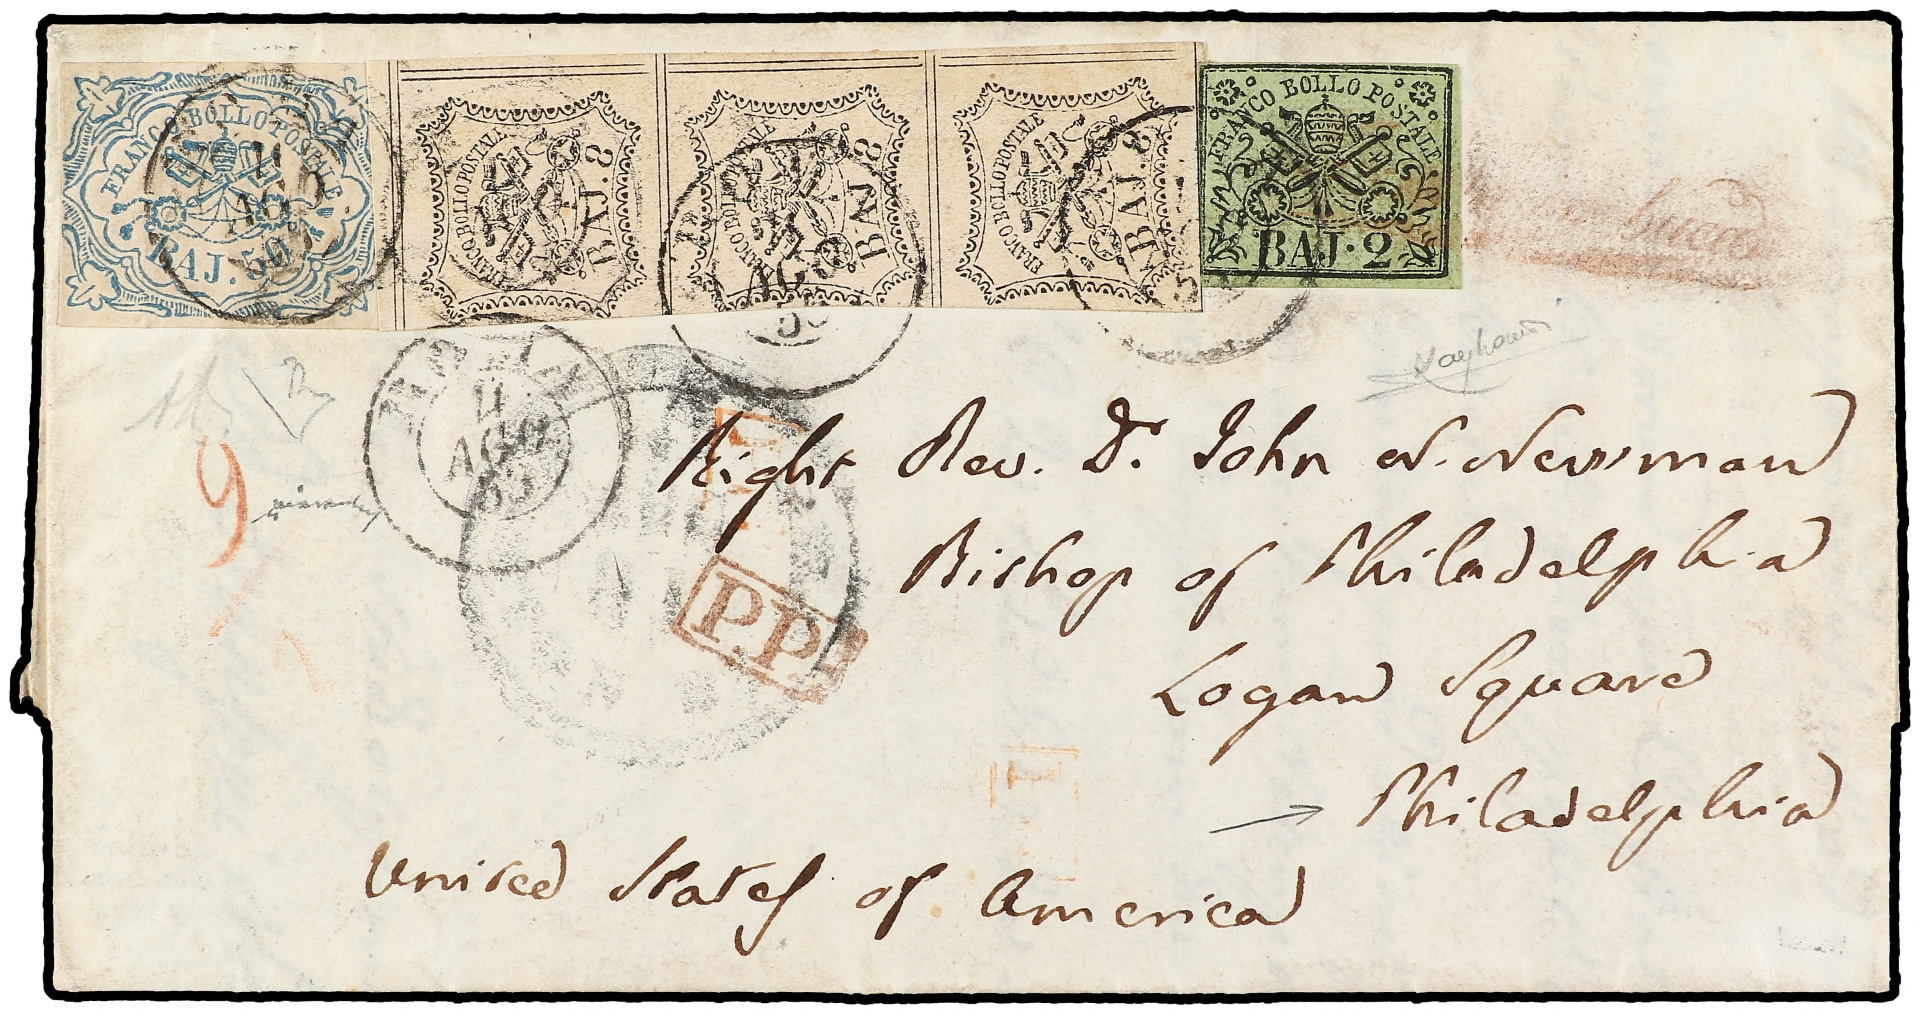 FRANCO BOLLO POSTALE
BAJ. 50
FRANCO BOLLO POSTALE
BAJ. 8
FRANCO BOLLO POSTALE
BAJ. 8
FRANCO BOLLO POSTALE
BAJ. 8
FRANCO BOLLO POSTALE
BAJ. 2
ROMA
11
AGO
55
9
P.P.
Right Rev. Dr. John N. Newman
Bishop of Philadelphia
Logan Square
Philadelphia
United States of America